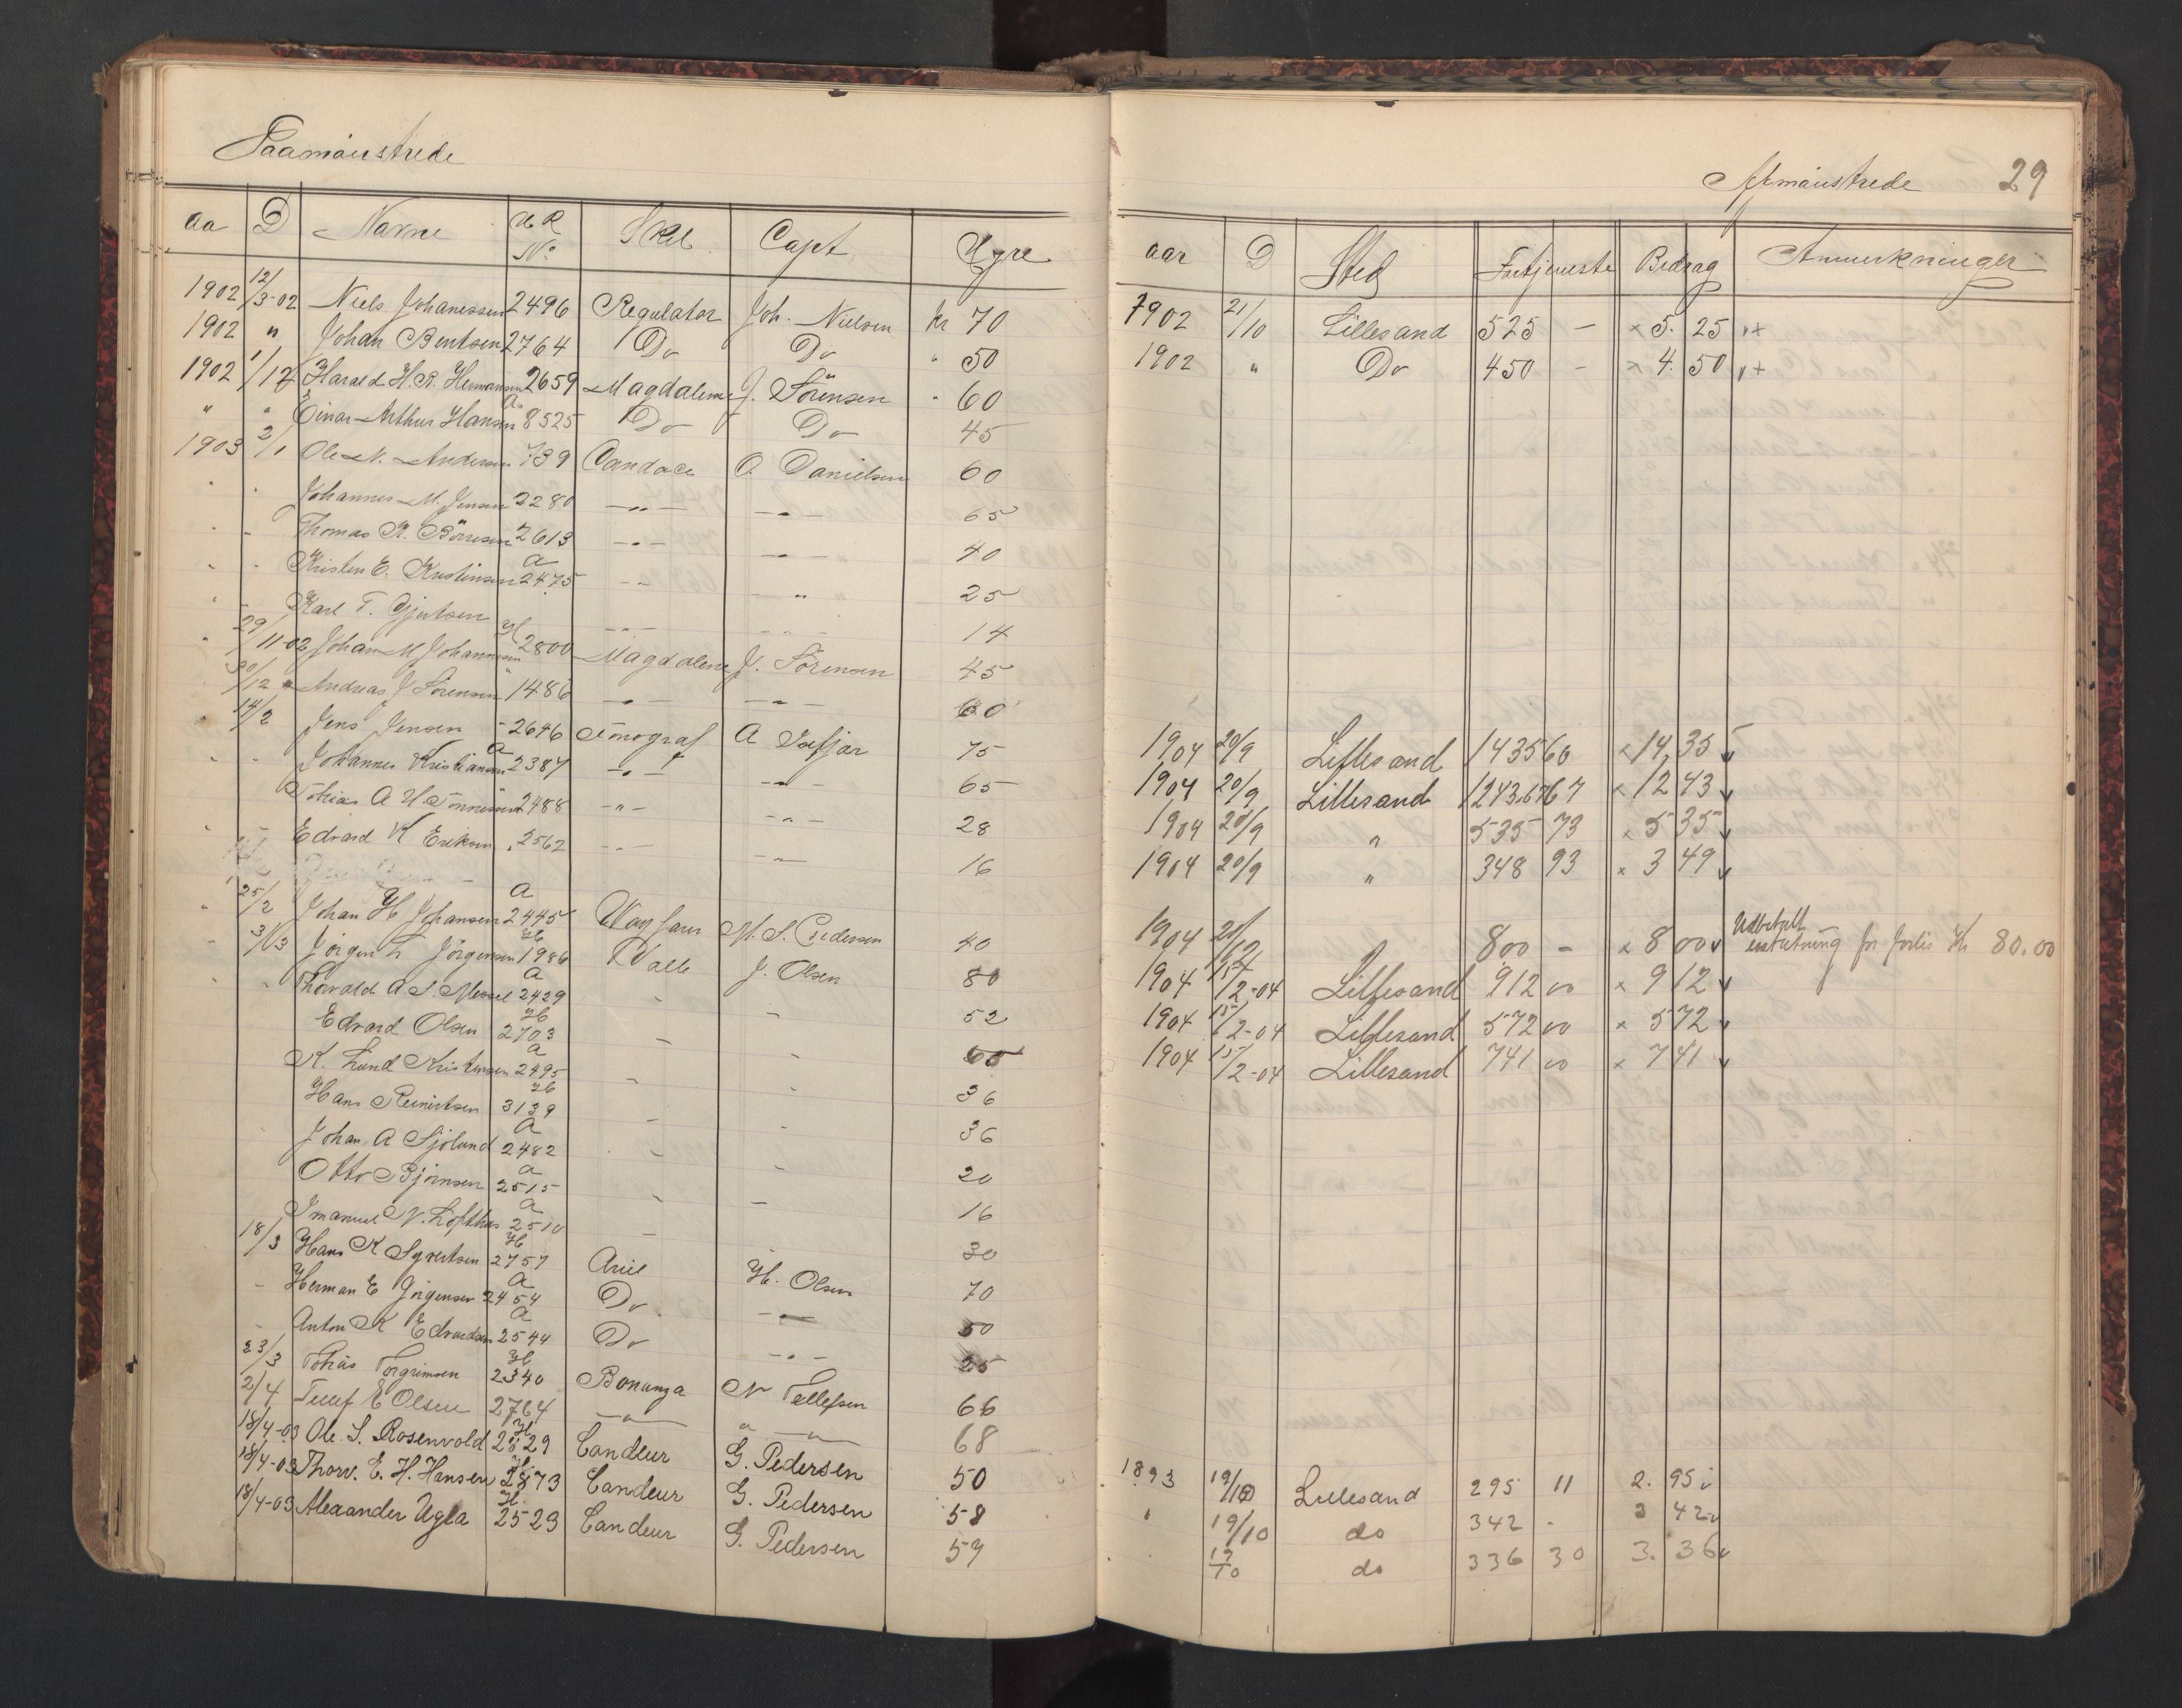 Paamønstrede
aa D Navne H R No Skib Capt Hyre
1902 12/3-02 Niels Johanessen 2496 Regulator Joh. Nielsen kr 70
1902 " Johan Bentsen 2764 Do Do " 50
1902 1/12 Harald H. R. Hermansen 2659 Magdalene J. Sörensen " 60
" " Einar Arthur Hansen a 8525 Do Do 45
1903 2/1 Ole N. Andersen 739 Candace O. Danielsen 60
" " Johannes M. Jensen 2280 — " — — " — 65
" " Thomas R. Börresen 2613 — " — — " — 40
" " Kristen E. Kristensen a 2475 — " — " — 25
" Karl T. Gjertsen — " — — " — 14
" 29/11-02 Johan M Johannesen Hb 2800 Magdalene J. Sörensen 45
30/12 " Andreas J Sörensen " 1486 — " — — " — 60
" 14/2 Jens Jensen - 2646 A 75
" " Johannes Kristiansen a 2387 — " — — " — 65
Tobias A H Tönnesen 2488 — " — — " — 28
" — Edvard K Eriksen " 2562 — " — — " — 16
" 25/2 Johan H Johansen a 2445 Wayfarer M. S. Pedersen 40
" 3/3 Jörgen L Jörgensen Hb 1986 Valle J. Olsen 80
" " Thorvald A. S. Messel a 2429 " " 52
Edvard Olsen Hb 2703 " " 65
K. Lund Kristensen a 2495 " " 36
Hans Reinertsen Hb 3139 " " 36
Johan A Sjölund a 2482 " " 20
Otto Björnsen a 2515 " — 16
Imanuel N. Lofthus a 2510 — " 30
18/3 Hans K Syvertsen Hb 2757 Ariel H. Olsen 70
— Herman E Jörgensen a 2454 Do — " — 50
— Anton K Edvardsen a 2544 Do — " — 25
23/3 Tobias Torgrimsen Hb 2340 Bonanza N Tallefsen 66
2/4 E Olsen 2764 — " — " — " — 68
18/4-03 Ole. S. Rosenvold Hb 2829 Candeur G. Pedersen 50
18/4-03 Thorv. E. H. Hansen Hb 2873 Candeur G. Pedersen 58
18/4-03 Alexander Ugla Hb 2529 Candeur G. Pedersen 57
Afmønstrede 29
aar D Sted Fortjeneste Bedrag Anmerkninger
1902 21/10 Lillesand 525 - × 5. 25 v+
1902 " Do 450 - × 4. 50 v+
1904 20/9 Lillesand 1435 60 × 14,35 v
1904 20/9 Lillesand 1243.67 67 × 12 43 v
1904 20/9 " 535 73 × 5 35 v
1904 20/9 " 348 93 × 3 49 v
1904 20/12 " 800 - × 8 00 v Udbetalt erstatning for forlis Kr 80.00
1904 15/2-04 Lillesand 912 00 × 9 12 v
1904 15/2-04 Lillesand 572 00 × 5 72 v
1904 15/2-04 Lillesand 741 00 × 7 41 v
1893 19/10 Lillesand 295 11 2. 95 v
" 19/10 do 342 - 3 42 v
" 19/10 do 336 30 3. 36 v